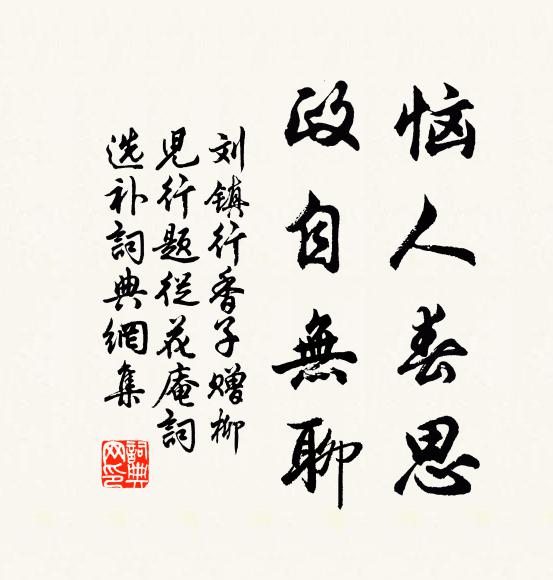 恼人春思
政自無聊
刘镇行香子赠柳
児行题從花庵詞
选补詞典網集
詞典
网印